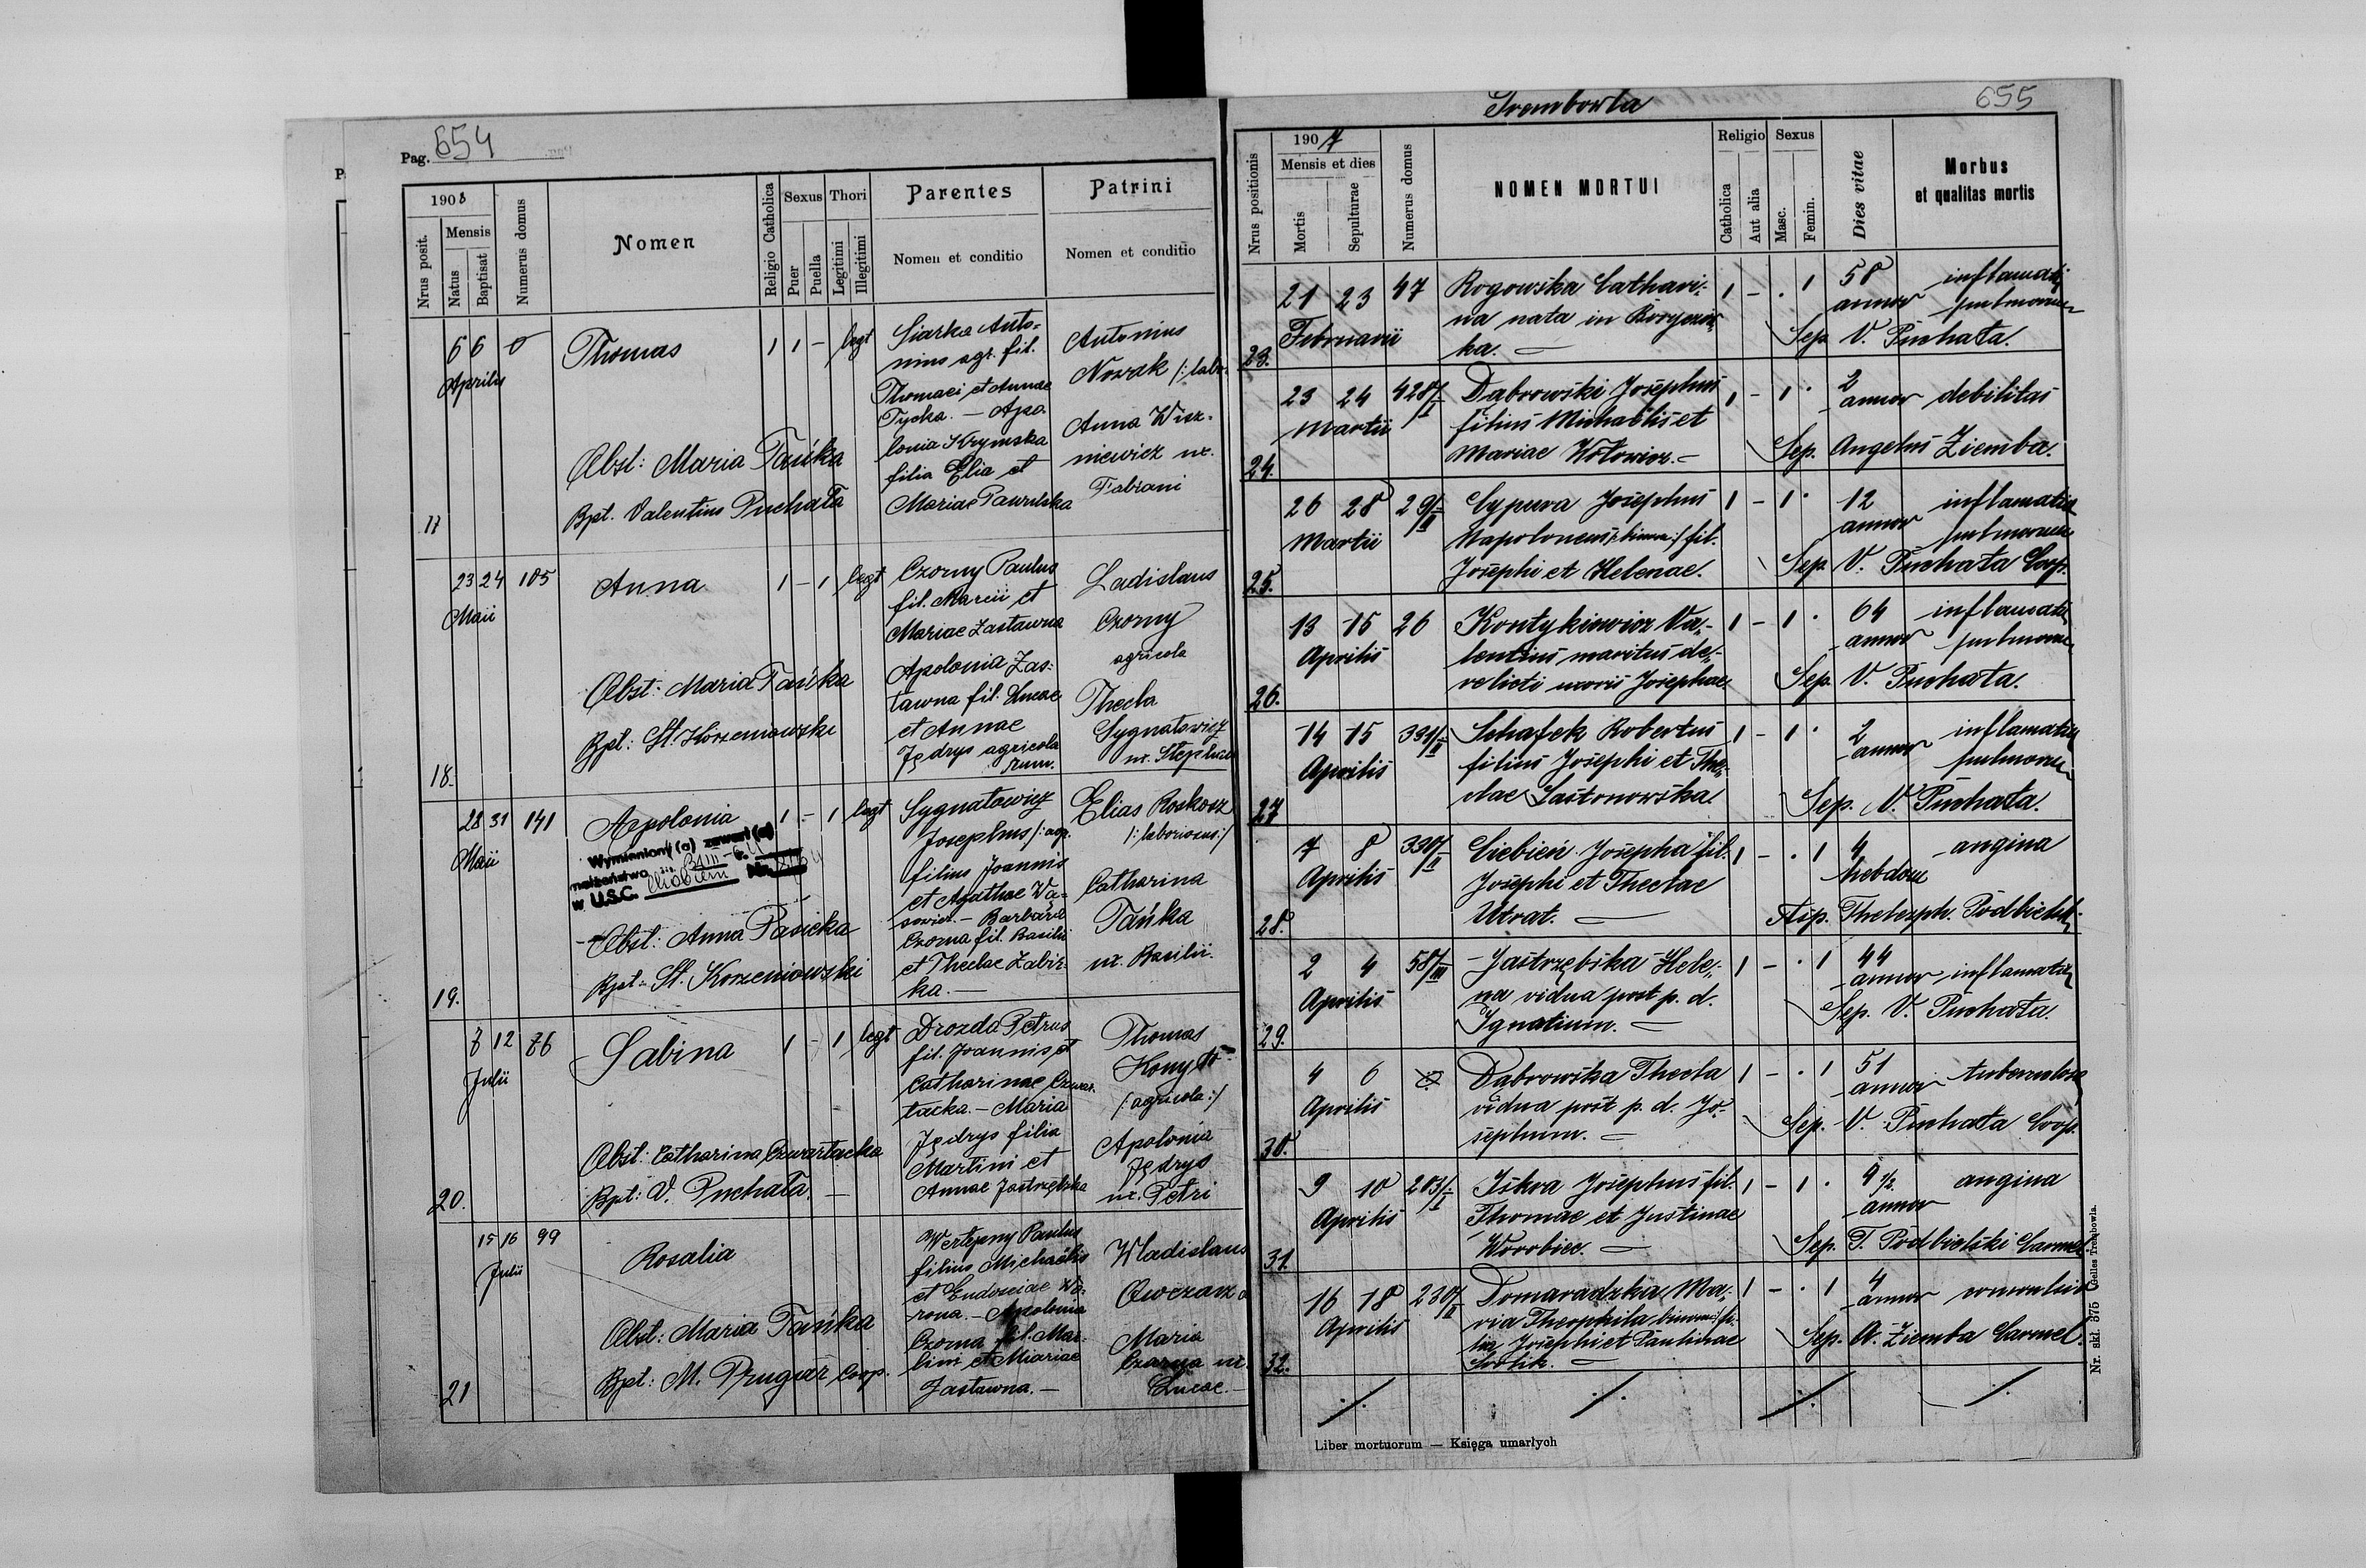 Pag. 654
1908
Nrus posit.
Mensis
Natus
Baptisat
Numerus domus
Nomen
Religio Catholica
Sexus
Puer
Puella
Thori
Legitimi
Illegitimi
Parentes
Nomen et conditio
Patrini
Nomen et conditio
17
6 6
Aprilis
Thomas
1 1 - legt
Obst: Maria Tańka
Bpt. Valentius Puchała
Siarka Anto=
nius agr. fil.
Thomaei et Annae
Tycka. - Apo
lonia Krymska
filia Elia et
Mariae Pawulska
Antonius
Nowak /: labo.
Anna Wisz-
niewicz ux.
Fabiani
18.
23 24 105
Maii
Anna
1 - 1 legt
Obst: Maria Tańka
Bpt: St. Korzeniowski
Czorny Paulus
fil. Marcii et
Mariae Zastawna
Apolonia Zas:
tawna fil. Lucae
et Annae
Jędrys agricola
rum.
Ladislaus
Czorny
agricola
Thecla
Sygnatowicz
ux. Stephani
19.
28 31 141
Maii
Apolonia
1 - 1 legt
Wymieniony (a) zawarł (a)
małżeństwo
w U.S.C.
Obst: Anna Pasicka
Bpt: St. Korzeniowski
Sygnatowicz
Josephus /: agr.
filius Joannis
et Agathae Wą-
sowicz. - Barbara
Czorna fil. Basilii
et Theclae Zabiż-
ka. -
Elias Roskosz
/: laboriosus :/
Catharina
Tańka
ux. Basilii.
20.
7 12 76
Julii
Sabina
1 - 1 legt
Obst: Catharina Czwartacka
Bpt: V. Puchała. -
Drozda Petrus
fil. Joannis et
Catharinae Czwar-
tacka. - Maria
Jędrys filia
Martini et
Annae Jastrzębska
Thomas
/: agricola :/
Apolonia
Jędrys
ux. Petri
21
15 16 99
Julii
Rosalia
Obst: Maria Tańka
Bpt: M. Prugar Coop.
Wertepny Paulus
filius Michaëlis
et Eudociae Wo-
rona. - Apolonia
Czorna fil. Mar-
et Mariae
Zastawna. -
Wladislaus
Owczarz
Maria
Czarna ux.
Lucae. -
Trembowla
655
1907
Nrus positionis
Mensis et dies
Mortis
Sepulturae
Numerus domus
NOMEN MORTUI
Religio
Catholica
Aut alia
Sexus
Masc.
Femin.
Dies vitae
Morbus
et qualitas mortis
23.
21 23 47
Februarii
Rogowska Cathari-
na nata in
ka. -
1 - . 1
58
annor
inflamatio
pulmonum
Sep. V. Puchała.
24.
23 24 428/I
Martii
Dabrowski Josephus
filius Michaëlis et
Mariae Wołowicz. -
1 - 1 .
2
annor debilitas
Sep. Angelus Ziemba.
25.
26 28 29/II
Martii
Cypura Josephus
Napoloneus /: binom :/ fil.
Josephi et Helenae.
1 - 1 .
12
annor
inflamatio
pulmonum
Sep. V. Puchała Coop.
26.
13 15 26
Aprilis
Kontykiewicz Va-
lentius maritus de-
relicti uxoris Josephae.
1 - 1 .
64
annor
inflamatio
pulmonum
Sep. V. Puchała.
27
14 15 331/II
Aprilis
Schafek Robertus
filius Josephi et The-
clae Sastonowska
1 - 1 .
2
annor
inflamatio
pulmonum
Sep. V. Puchała.
28.
7 8 330/II
Aprilis
Ciebień Josepha fil.
Josephi et Theclae
Utrat. -
1 - . 1
4
hebdom
angina
Sep. Thelesph. Podbielski
29.
2 4 58/III
Aprilis
Jastrzębska Hele-
na vidua post p. d.
Ignatium. -
1 - . 1
44
annor inflamatio
Sep. V. Puchała.
30.
4 6
Aprilis
Dabrowska Thecla
vidua post p. d. Jo-
sephum. -
1 - . 1
51
annor tuberculosa
Sep. V. Puchała Coop.
31.
9 10 203/I
Aprilis
Iskra Josephus fil.
Thomae et Justinae
Worobiec. -
1 - 1 .
4 1/2
annor
angina
Sep. T. Podbielski Carmel.
32.
16 18 230/II
Aprilis
Domaradzka Ma-
ria Theophila binom :/ fi-
lia Josephi et Paulinae
1 - . 1
4
annor convulsio
Sep. A. Ziemba Carmel.
Liber mortuorum — Księga umarłych
Nr. skł. 375 Gelles Trembowla.